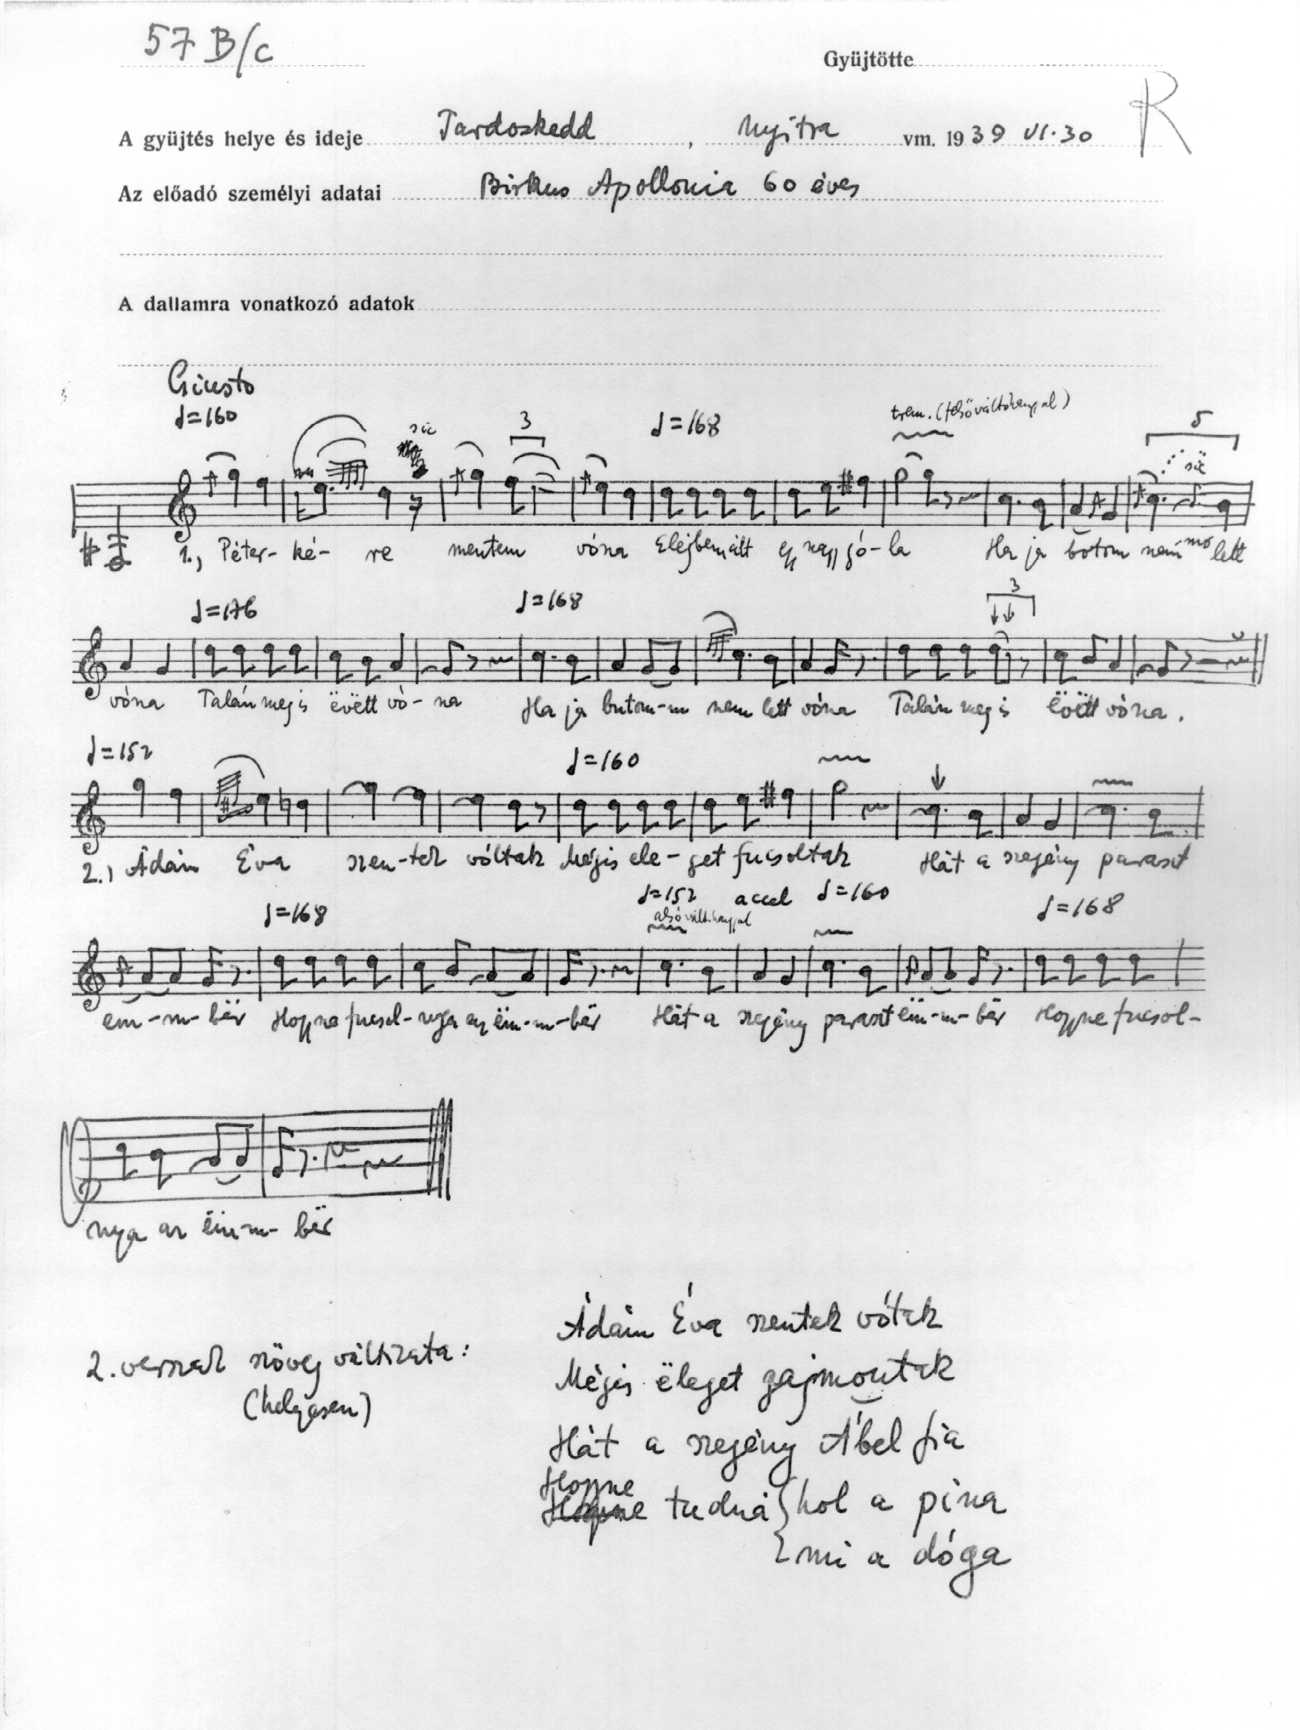 57 B/c
Gyüjtötte
R
A gyüjtés helye és ideje Tardoskedd, Nyitra vm. 1939 VI.30
Az előadó személyi adatai Birkus Apollonia 60 éves
A dallamra vonatkozó adatok
Giusto
♩=160 sic 3 ♩=168 trem. (felsőváltóhanggal) 5 sic
1., Péter-ké-re mentem vóna Elejbem ált egy nagy gó-la Ha ja botom nem lett
♩=176 ♩=168 3
vóna Talán meg is ëvëtt vó-na Ha ja butom-m nem lett vóna Talán meg is ëvëtt vóna.
♩=152 ♩=160
2.) Ádám Éva szen-tek vóltak Mégis ele-get fucsoltak Hát a szegény paraszt
♩=168 ♩=152 accel ♩=160 ♩=168
em-m-bër Hogyne fucsol-nya az ëm-m-bër Hát a szegény paraszt ëm-m-bër Hogyne fucsol-
nya az ëm-m-bër
2. versnek szöveg változata:
(helyesen)
Ádám Éva szentek vótak
Mégis ëleget gajmoutak
Hát a szegény Ábel fia
Hogyne
tudná { hol a pina
{ mi a dóga